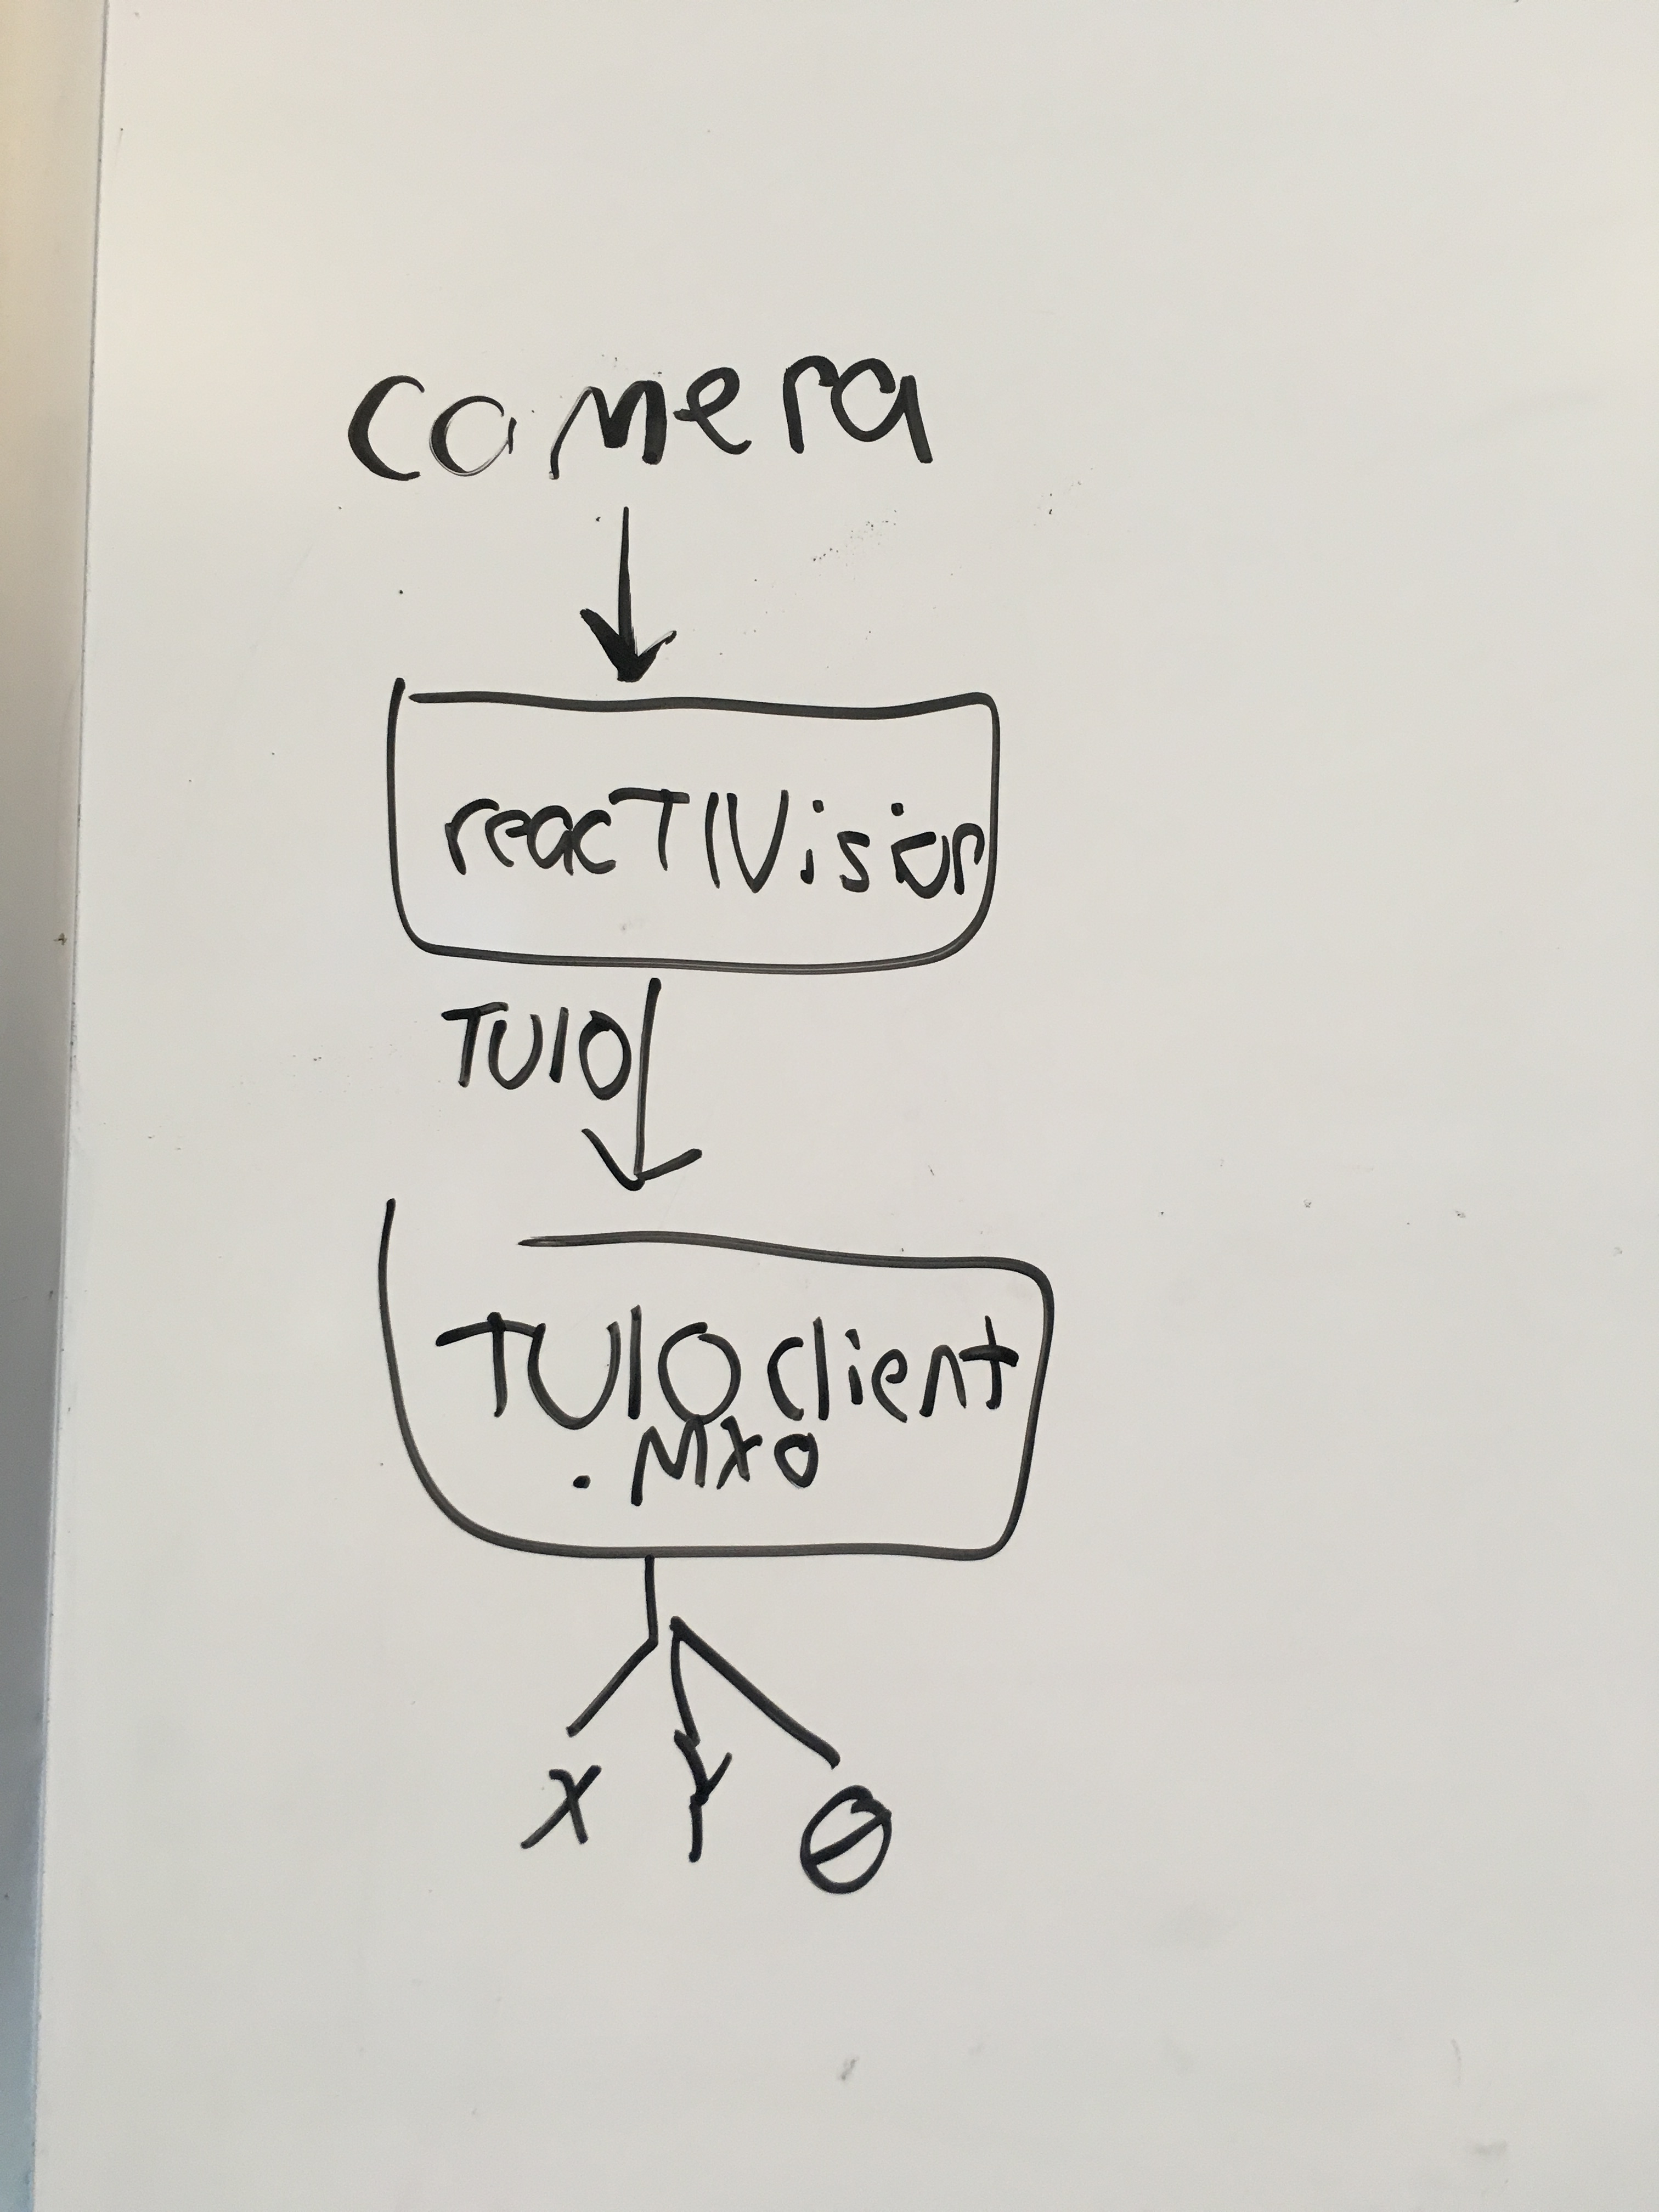 camera
reacTIVision
TUIO
TUIOclient
.mxo
x
Y
θ